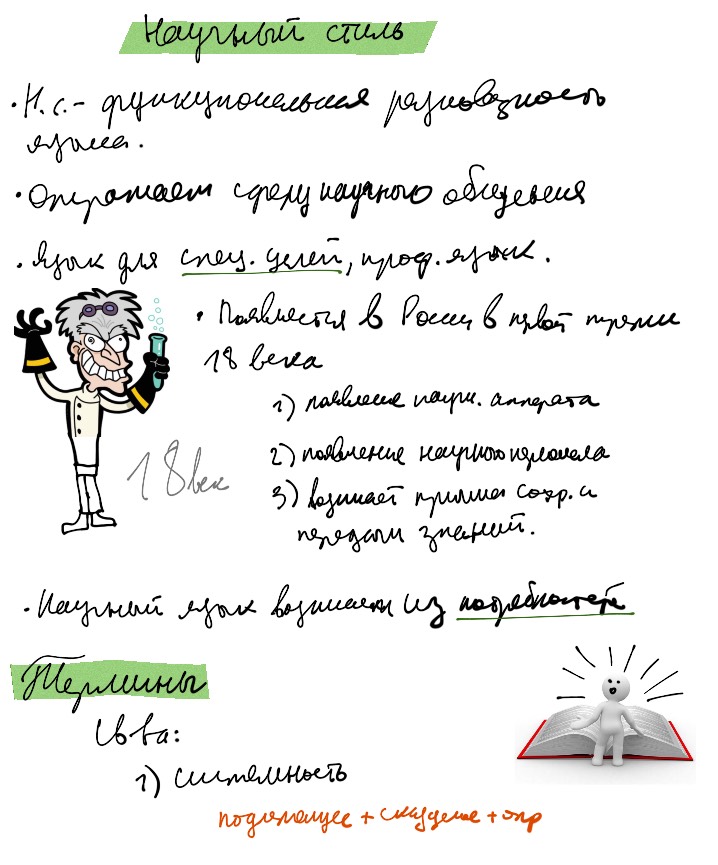 Научный стиль
• Н.с. - функциональная разновидность
языка.
• Отражает сферу научного общения
• Язык для спец. целей, проф. язык.
• Появляется в России в первой трети
18 века
1) появление научн. аппарата
2) появление научного
3) возникает сохр. и
передачи знаний.
18 век
• Научный язык возникает из потребностей
Термины
Св-ва:
1) системность
подлежащее + сказуемое + опр